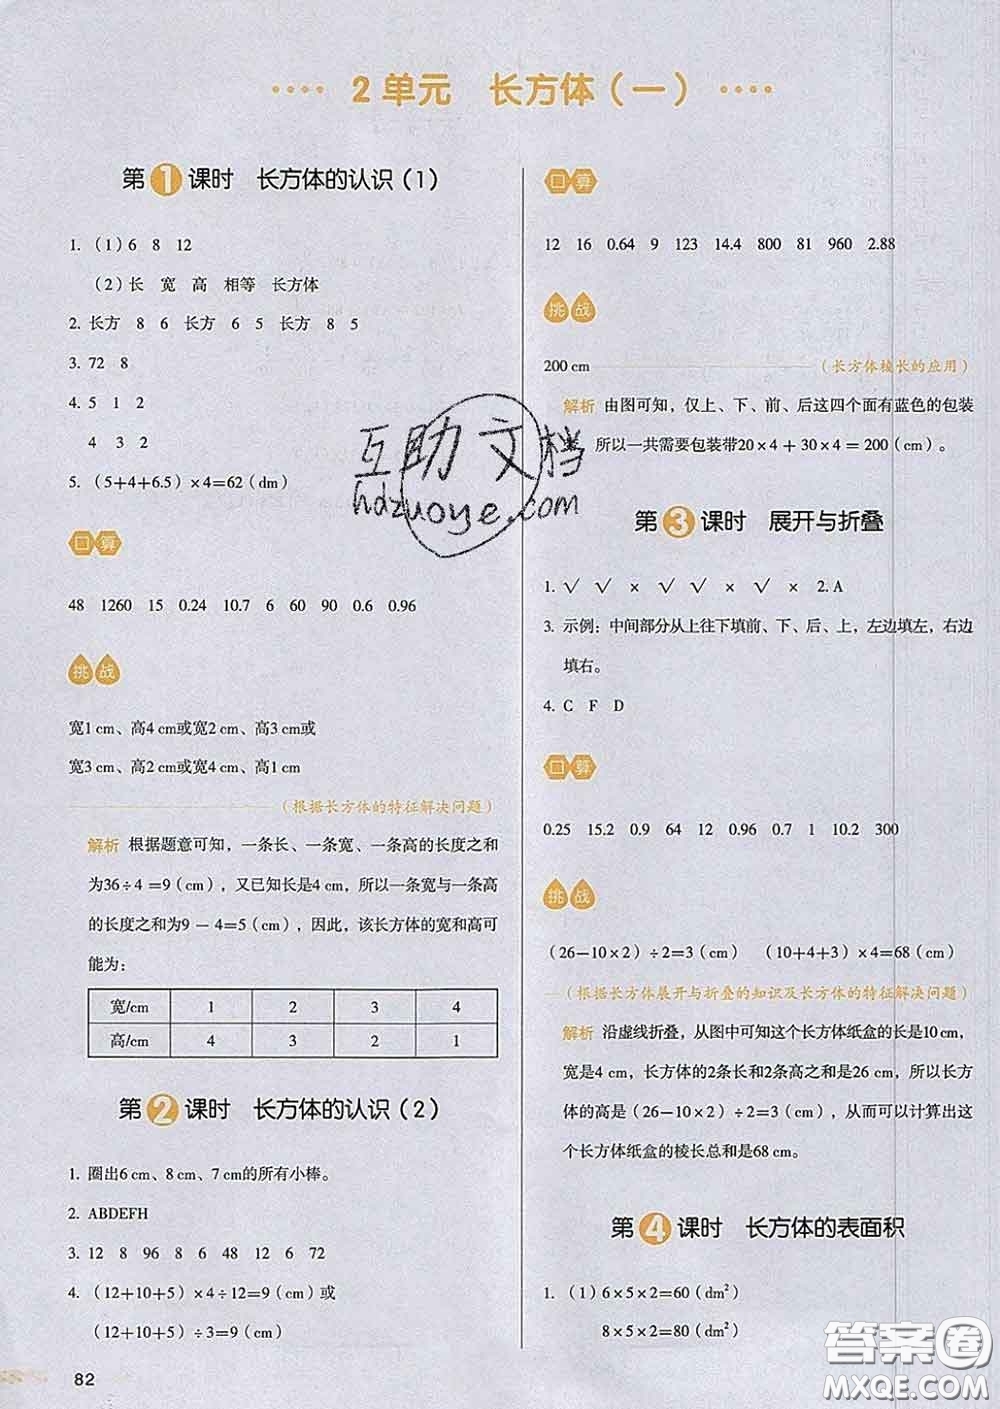 2 单元 长方体（一）
第1课时 长方体的认识（1）
1. （1）6 8 12
（2）长 宽 高 相等 长方体
2. 长方 8 6 长方 6 5 长方 8 5
3. 72 8
4. 5 1 2
4 3 2
5. （5+4+6.5）×4=62（dm）
口算
48 1260 15 0.24 10.7 6 60 90 0.6 0.96
挑战
宽1 cm、高4 cm或宽2 cm、高3 cm或
宽3 cm、高2 cm或宽4 cm、高1 cm
（根据长方体的特征解决问题）
解析 根据题意可知，一条长、一条宽、一条高的长度之和
为36÷4 =9（cm），又已知长是4 cm，所以一条宽与一条高
的长度之和为9 — 4=5（cm），因此，该长方体的宽和高可
能为：
宽/cm 1 2 3 4
高/cm 4 3 2 1
第2课时 长方体的认识（2）
1. 圈出6 cm、8 cm、7 cm的所有小棒。
2. ABDEFH
3. 12 8 96 8 6 48 12 6 72
4. （12+10+5）×4÷12=9（cm）或
（12+10+5）÷3=9（cm）
82
口算
12 16 0.64 9 123 14.4 800 81 960 2.88
挑战
200 cm （长方体棱长的应用）
解析 由图可知，仅上、下、前、后这四个面有蓝色的包装
所以一共需要包装带20×4＋30×4＝200（cm）。
第3课时 展开与折叠
1. √ √ × √ √ × √ × 2. A
3. 示例：中间部分从上往下填前、下、后、上，左边填左，右边
填右。
4. C F D
口算
0.25 15.2 0.9 64 12 0.96 0.7 1 10.2 300
挑战
（26—10×2）÷2=3（cm） （10+4+3）×4=68（cm）
（根据长方体展开与折叠的知识及长方体的特征解决问题）
解析 沿虚线折叠，从图中可知这个长方体纸盒的长是10 cm，
宽是4 cm，长方体的2条长和2条高之和是26 cm，所以长方
体的高是（26—10×2）÷2=3（cm），从而可以计算出这
个长方体纸盒的棱长总和是68 cm。
第4课时 长方体的表面积
1. （1）6×5×2=60（dm²）
8×5×2=80（dm²）
互助文档
hdzuoye.com
答案圈
MXQE.COM